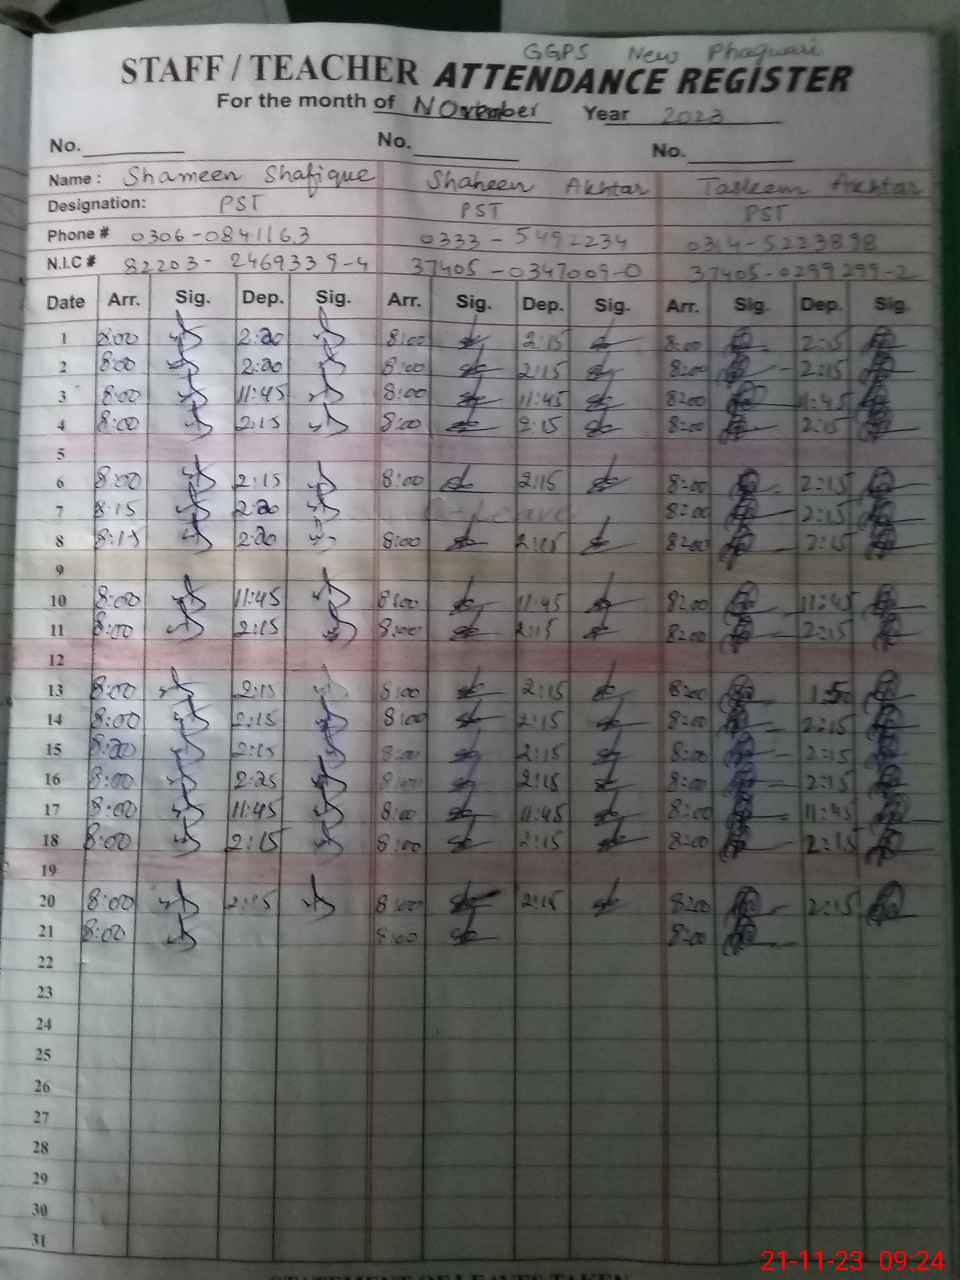 GGPS New Phagwari
STAFF / TEACHER ATTENDANCE REGISTER
For the month of November Year 2023
No. No. No.
Name : Shameen Shafique Shaheen Akhtar Tasleem Akhtar
Designation: PST PST PST
Phone # 0306-0841163 0333-5492234 0314-5223898
N.I.C # 82203-2469339-4 37405-0347009-0 37405-0299299-2
Date Arr. Sig. Dep. Sig. Arr. Sig. Dep. Sig. Arr. Sig. Dep. Sig.
1 8:00 2:20 8:00 2:15 8:00 2:15
2 8:00 2:20 8:00 2:15 8:00 2:15
3 8:00 11:45 8:00 11:45 8:00 11:45
4 8:00 2:15 8:00 2:15 8:00 2:15
5
6 8:00 2:15 8:00 2:15 8:00 2:15
7 8:15 2:20 Leave 8:00 2:15
8 8:15 2:20 8:00 2:15 8:00 2:15
9
10 8:00 11:45 8:00 11:45 8:00 11:45
11 8:00 2:15 8:00 2:15 8:00 2:15
12
13 8:00 2:15 8:00 2:15 8:00 1:50
14 8:00 2:15 8:00 2:15 8:00 2:15
15 8:00 2:15 8:00 2:15 8:00 2:15
16 8:00 2:25 8:00 2:15 8:00 2:15
17 8:00 11:45 8:00 11:45 8:00 11:45
18 8:00 2:15 8:00 2:15 8:00 2:15
19
20 8:00 2:15 8:00 2:15 8:00 2:15
21 8:00 8:00 8:00
22
23
24
25
26
27
28
29
30
31
STATEMENT OF LEAVES TAKEN
21-11-23 09:24